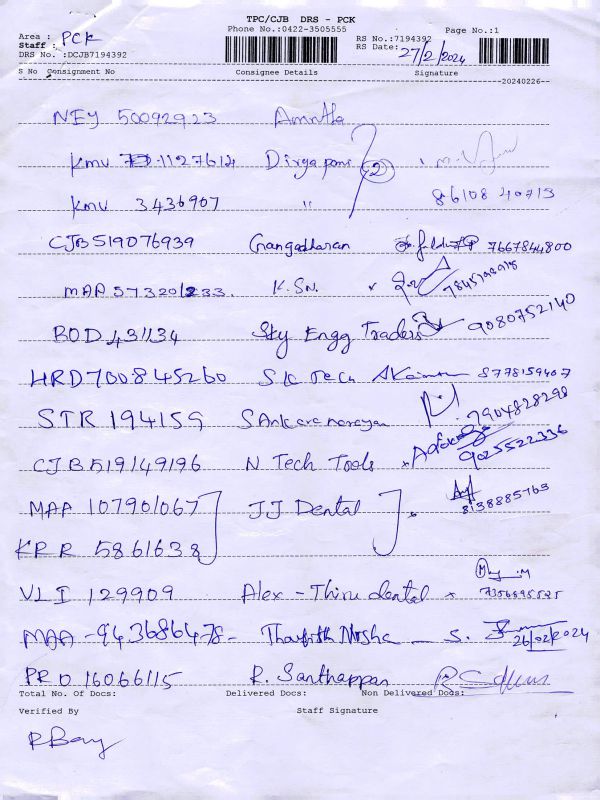 TPC/CJB DRS - PCK
Phone No.:0422-3505555
Page No.:1
Area : PCK
RS No.:7194392
Staff :
RS Date: 27/2/2024
DRS No. :DCJB7194392
S No Consignment No Consignee Details Signature
20240226
NEY 50092923 Amrtha
KMU 1127614 Divya poni (2)
KMU 3436907 " 86108 40713
CJB519076939 Gangadharan 7667844800
MAA 573201233. K.SN.
BOD 431134 Sky Engg Traders 9080752140
HRD700845260 S K Tech 8778159407
STR 194159 SAnkaranarayan 7904828298
CJB519149196 N Tech Tools 9025522336
MAA 107901067 JJ Dental 8138885763
KRR 5861638
VLI 129909 Alex - Thiru dental 7356895525
MAA - 943686478 - S. 26/02/2024
PRO 16066115 R. Santhappan
Total No. Of Docs: Delivered Docs: Non Delivered Docs:
Verified By Staff Signature